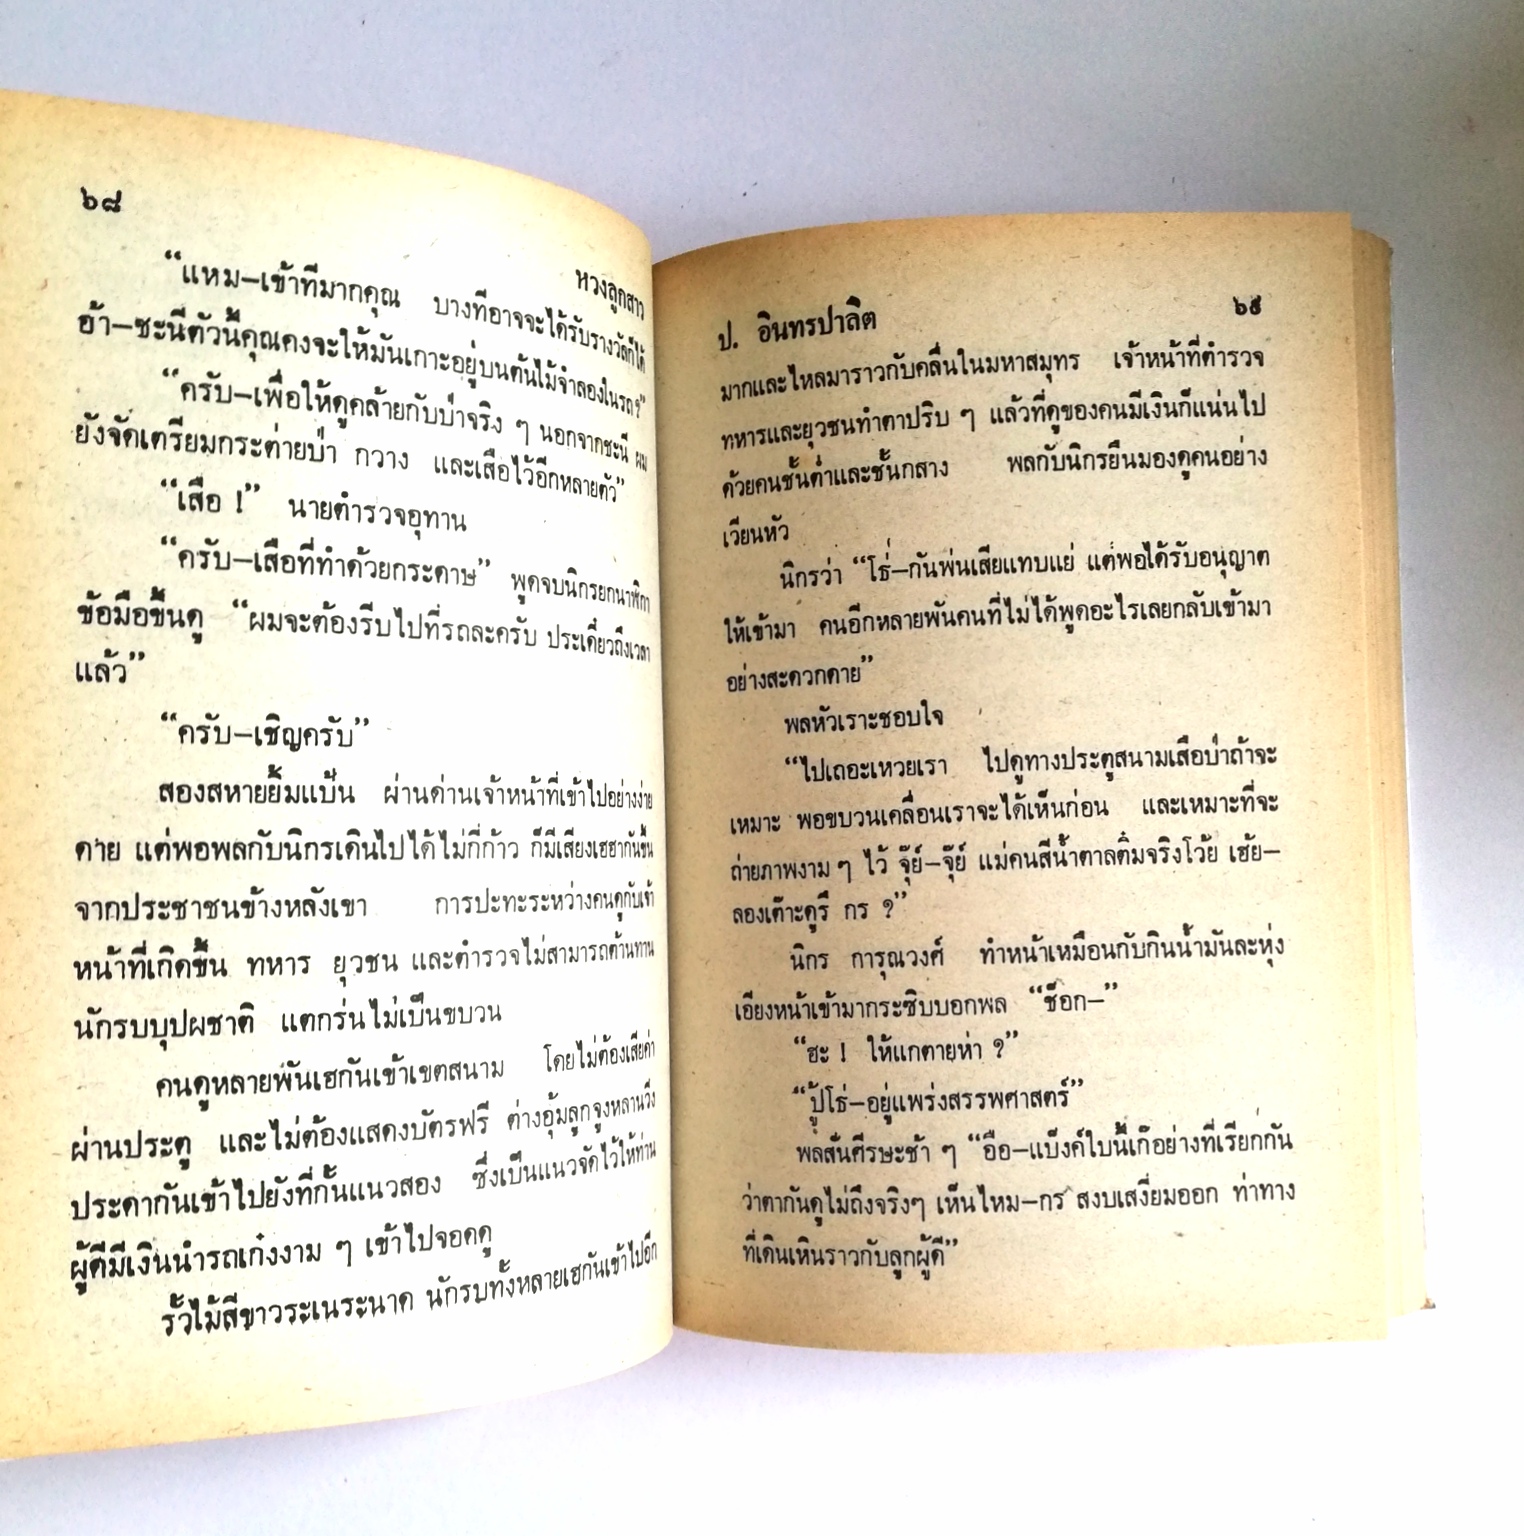 ๖๘
หวงลูกสาว
“แหม—เข้าทีมากคุณ บางทีอาจจะได้รับรางวัลก็ได้
อ้า—ชะนีตัวนี้คุณคงจะให้มันเกาะอยู่บนต้นไม้จำลองในรถ?”
“ครับ—เพื่อให้ดูคล้ายกับป่าจริง ๆ นอกจากชะนี ผม
ยังจัดเตรียมกระต่ายป่า กวาง และเสือไว้อีกหลายตัว”
“เสือ !” นายตำรวจอุทาน
“ครับ—เสือที่ทำด้วยกระดาษ” พูดจบนิกรยกนาฬิกา
ข้อมือขึ้นดู “ผมจะต้องรีบไปที่รถละครับ ประเดี๋ยวถึงเวลา
แล้ว”
“ครับ—เชิญครับ”
สองสหายยิ้มแป้น ผ่านด่านเจ้าหน้าที่เข้าไปอย่างง่าย
ดาย แต่พอพลกับนิกรเดินไปได้ไม่กี่ก้าว ก็มีเสียงเฮฮากันขึ้น
จากประชาชนข้างหลังเขา การปะทะระหว่างคนดูกับเจ้า
หน้าที่เกิดขึ้น ทหาร ยุวชน และตำรวจไม่สามารถต้านทาน
นักรบบุปผชาติ แตกร่นไม่เป็นขบวน
คนดูหลายพันเฮกันเข้าเขตสนาม โดยไม่ต้องเสียค่า
ผ่านประตู และไม่ต้องแสดงบัตรฟรี ต่างอุ้มลูกจูงหลานวิ่ง
ประดากันเข้าไปยังที่กั้นแนวสอง ซึ่งเป็นแนวจัดไว้ให้ท่าน
ผู้ดีมีเงินนำรถเก๋งงาม ๆ เข้าไปจอดดู
รั้วไม้สีขาวระเนระนาด นักรบทั้งหลายเฮกันเข้าไปอีก
ป. อินทรปาลิต
๖๙
มากและไหลมาราวกับคลื่นในมหาสมุทร เจ้าหน้าที่ตำรวจ
ทหารและยุวชนทำตาปริบ ๆ แล้วที่ดูของคนมีเงินก็แน่นไป
ด้วยคนชั้นต่ำและชั้นกลาง พลกับนิกรยืนมองดูคนอย่าง
เวียนหัว
นิกรว่า “โธ่—กันพ่นเสียแทบแย่ แต่พอได้รับอนุญาต
ให้เข้ามา คนอีกหลายพันคนที่ไม่ได้พูดอะไรเลยกลับเข้ามา
อย่างสะดวกดาย”
พลหัวเราะชอบใจ
“ไปเถอะเหวยเรา ไปดูทางประตูสนามเสือป่าถ้าจะ
เหมาะ พอขบวนเคลื่อนเราจะได้เห็นก่อน และเหมาะที่จะ
ถ่ายภาพงาม ๆ ไว้ จุ๊ย์—จุ๊ย์ แม่คนสีน้ำตาลติ๋มจริงโว้ย เฮ้ย—
ลองเต๊าะดูรึ กร ?”
นิกร การุณวงศ์ ทำหน้าเหมือนกับกินน้ำมันละหุ่ง
เอียงหน้าเข้ามากระซิบบอกพล “ช็อก—”
“ฮะ ! ให้แกตายห่า ?”
“ปู้โธ่—อยู่แพร่งสรรพศาสตร์”
พลสั่นศีรษะช้า ๆ “อือ—แบ๊งค์ใบนี้เก๊อย่างที่เรียกกัน
ว่าตากันดูไม่ถึงจริงๆ เห็นไหม—กร สงบเสงี่ยมออก ท่าทาง
ที่เดินเหินราวกับลูกผู้ดี”